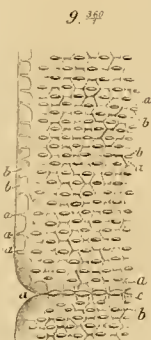 9. 360/1
a
b
b
a
b
b
a
a
a
a
a
c
b